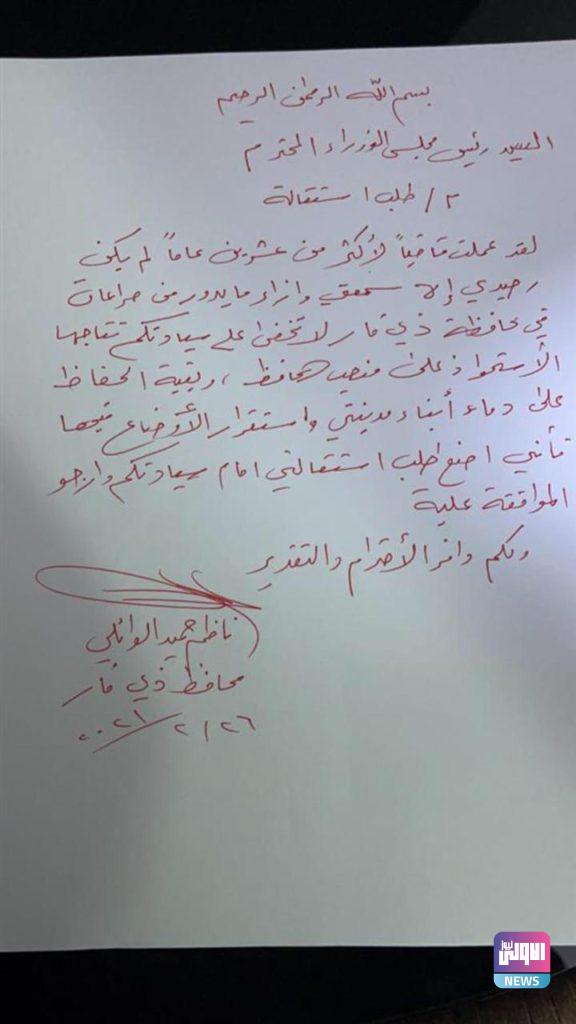 بسم الله الرحمن الرحيم
السيد رئيس مجلس الوزراء المحترم
م / طلب استقالة
لقد عملت قاضياً لأكثر من عشرين عاماً لم يكن
رصيدي إلا سمعتي وازاء ما يدور من صراعات
في محافظة ذي قار لا تخفى على سيادتكم نتاجها
الأستحواذ على منصب محافظ ، وبغية الحفاظ
على دماء أبناء مدينتي واستقرار الأوضاع فيها
فأني اضع طلب استقالتي امام سيادتكم وارجو
الموافقة علية
ولكم وافر الأحترام والتقدير
ناظم حميد الوائلي
محافظ ذي قار
٢٠٢١/٢/٢٦
الاولى نيوز
NEWS